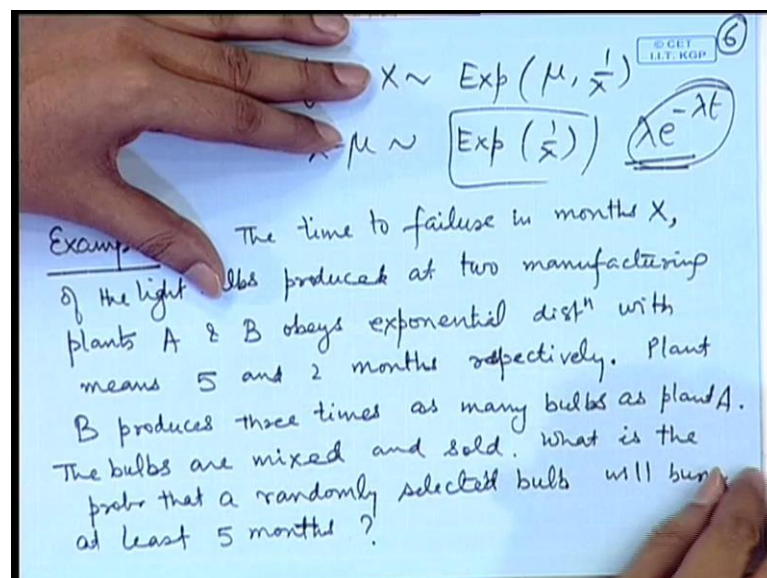 6
© CET
I.I.T. KGP
X ~ Exp ( μ, 1/λ )
- μ ~ Exp ( 1/λ ) ) λe^-λt
The time to failure in months X,
of the light bulbs produced at two manufacturing
plants A & B obeys exponential distⁿ with
means 5 and 2 months respectively. Plant
B produces three times as many bulbs as plant A.
The bulbs are mixed and sold. What is the
prob. that a randomly selected bulb will burn
at least 5 months ?